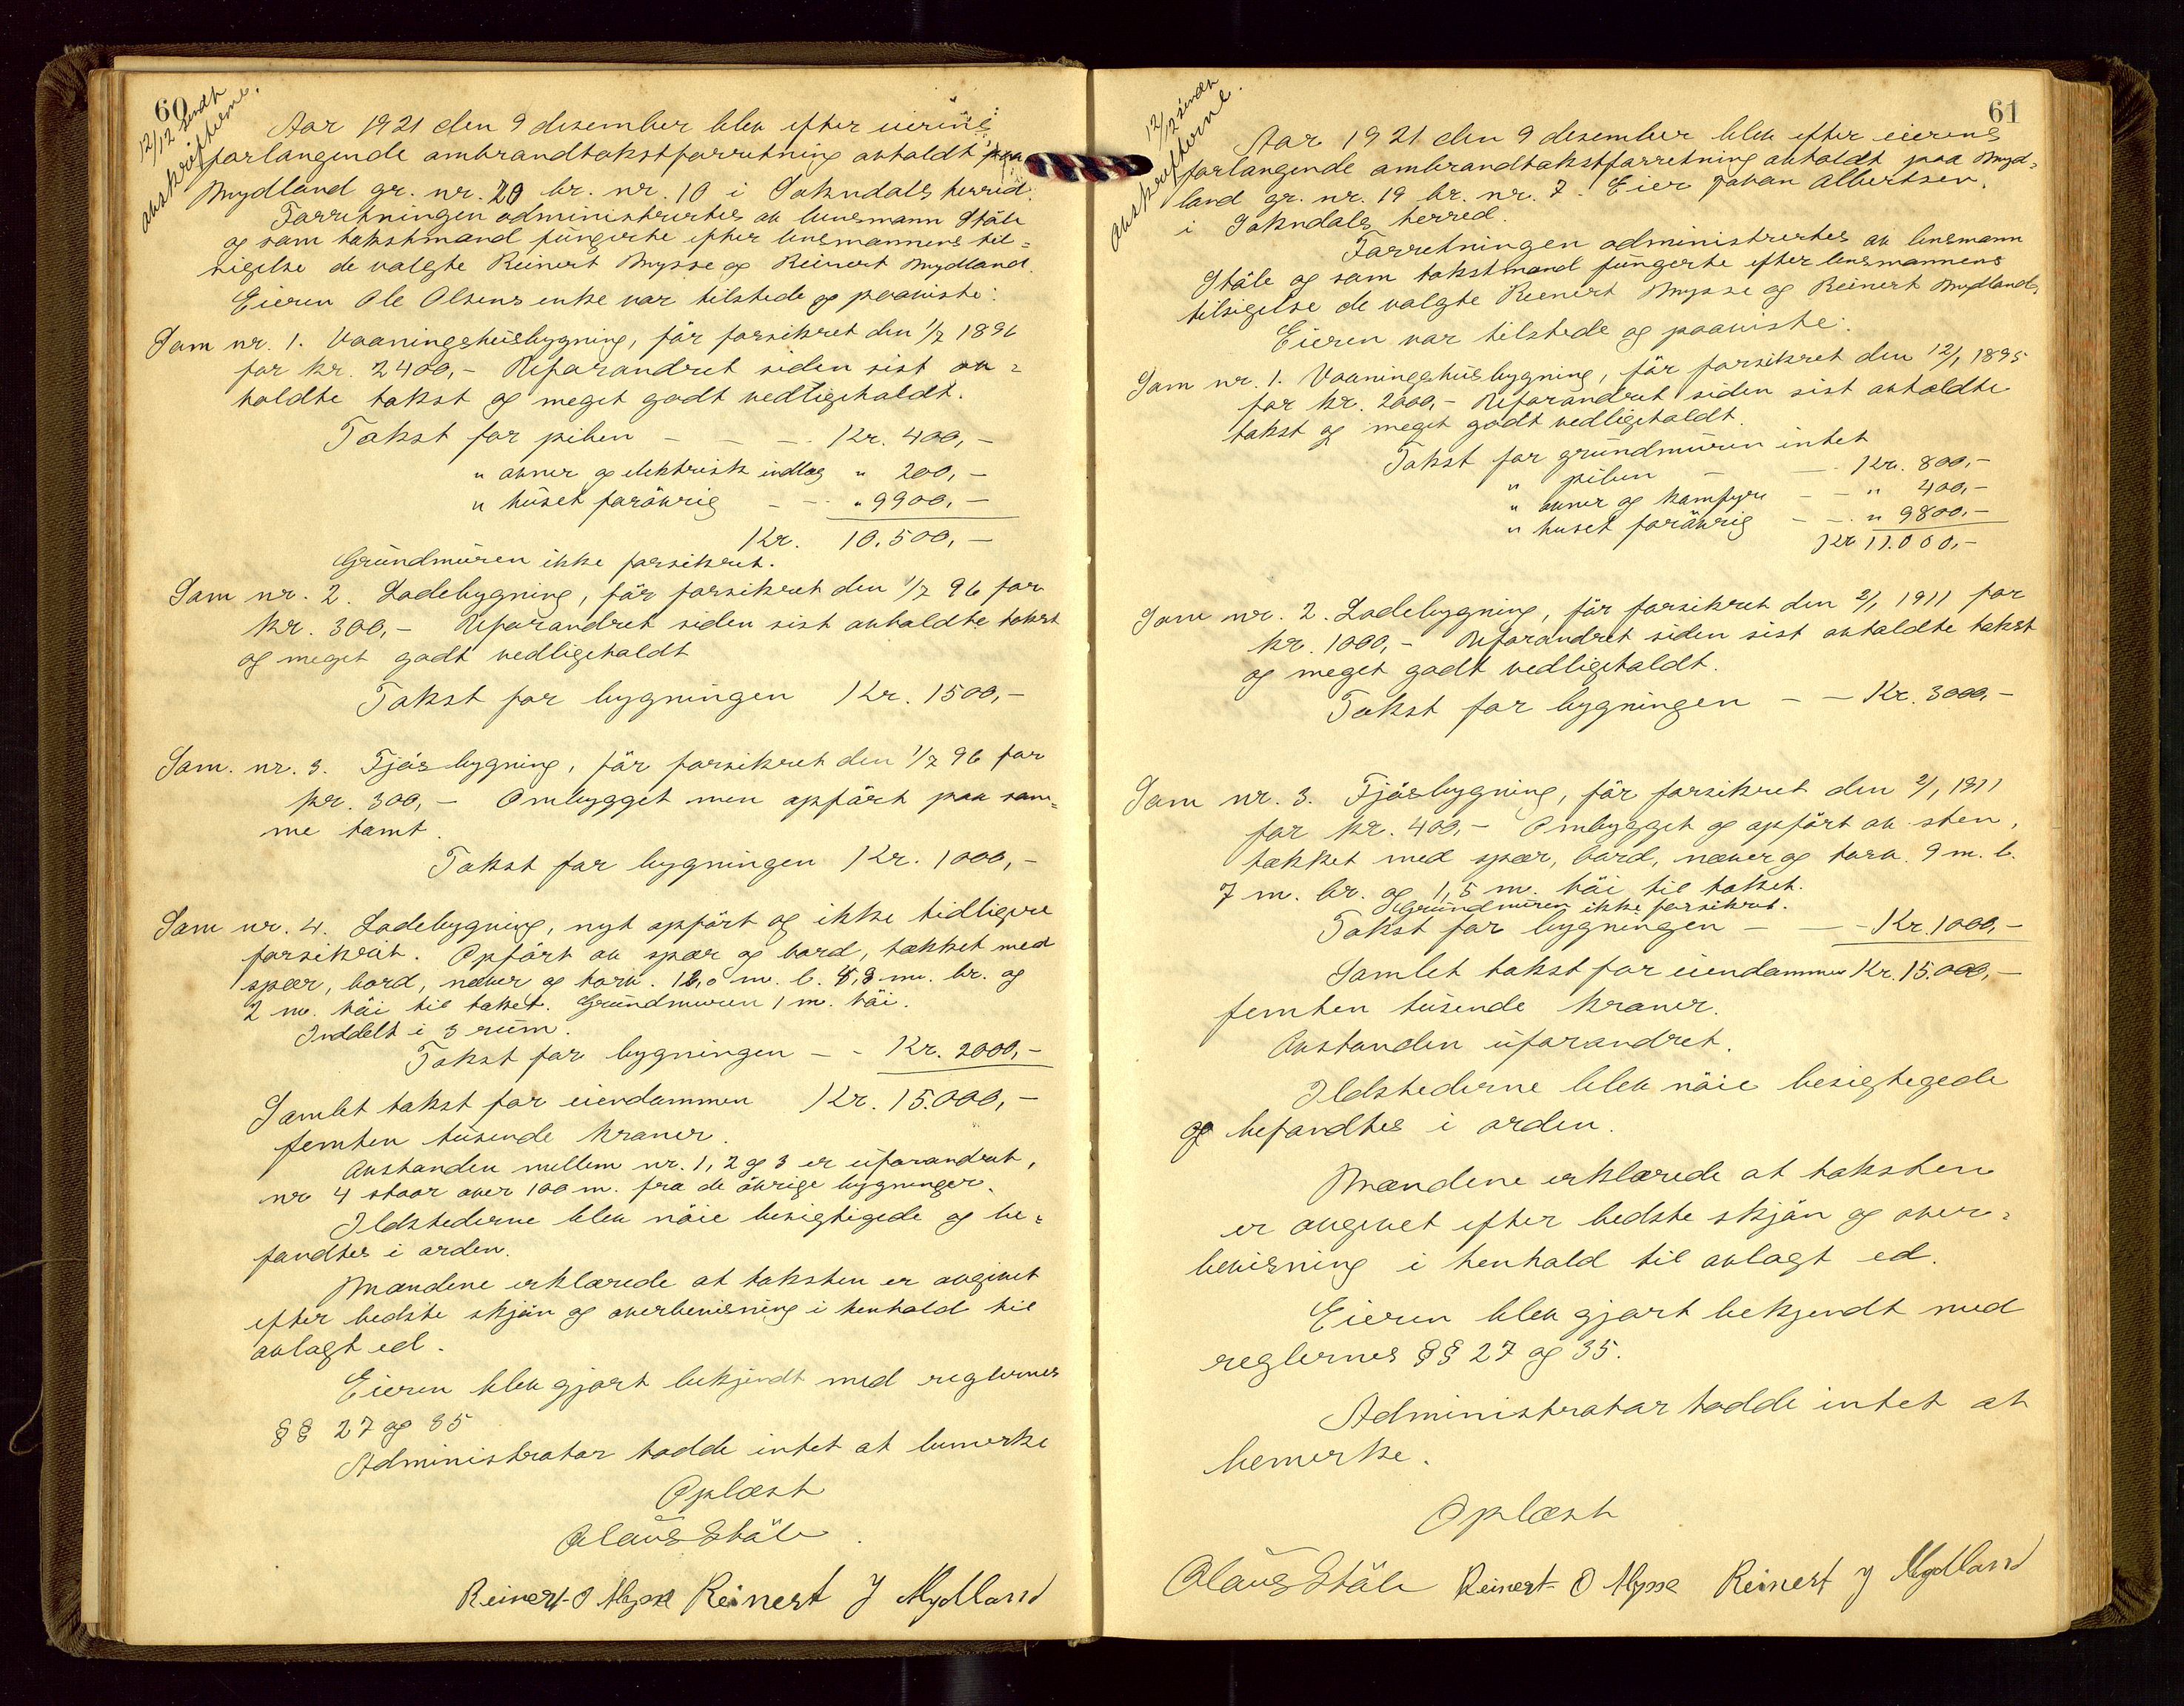 60
12/12 sendt
avskrifterne.
Aar 1921 den 9 desember blev efter eierens
forlangende ombrandtakstforretning avholdt paa
Mydland gr. nr. 20 br. nr. 10 i Sokndals herred.
Forretningen administrertes av lensmann Ståle
og som takstmænd fungerte efter lensmannens til=
sigelse de valgte Reinert Mysse og Reinert Mydland.
Eieren Ole Olsens enke var tilstede og paaviste:
Som nr. 1. Vaaningshusbygning, før forsikret den 1/7 1896
for kr. 2400,- Uforandret siden sist av=
holdte takst og meget godt vedligeholdt.
Takst for piben - - - Kr. 400,-
" ovner og elektrisk indlæg " 200,-
" huset forøvrig - - " 9900,-
Kr. 10.500,-
Grundmuren ikke forsikret.
Som nr. 2. Ladebygning, før forsikret den 1/7 96 for
kr. 300,- Uforandret siden sist avholdte takst
og meget godt vedligeholdt
Takst for bygningen Kr. 1500,-
Som nr. 3. Fjøsbygning, før forsikret den 1/7 96 for
kr. 300,- Ombygget men opført paa sam=
me tomt.
Takst for bygningen Kr. 1000,-
Som nr. 4. Ladebygning, nyt opført og ikke tidligere
forsikret. Opført av spær og bord, tækket med
spær, bord, næver og torv. 12,0 m. l. 8,8 m. br. og
2 m. høi til taket. Grundmuren 1 m. høi.
Inddelt i 3 rum.
Takst for bygningen - - Kr. 2000,-
Samlet takst for eiendommen Kr. 15.000,-
femten tusende kroner.
Avstanden mellem nr. 1, 2 og 3 er uforandret,
nr 4 staar over 100 m. fra de øvrige bygninger.
Ildstederne blev nøie besigtigede og be=
fandtes i orden.
Mændene erklærede at taksten er avgivet
efter bedste skjøn og overbevisning i henhold til
avlagt ed.
Eieren blev gjort bekjendt med reglernes
§§ 27 og 35
Administrator hadde intet at bemerke
Oplæst
Olaus Ståle
Reinert O Mysse Reinert J Mydland
61
12/12 sendt
avskrifterne.
Aar 1921 den 9 desember blev efter eierens
forlangende ombrandtakstforretning avholdt paa Myd=
land gr. nr. 19 br. nr. 7. Eier Johan Albertsen,
i Sokndals herred.
Forretningen administrertes av lensmann
Ståle og som takstmænd fungerte efter lensmannens
tilsigelse de valgte Reinert Mysse og Reinert Mydland.
Eieren var tilstede og paaviste:
Som nr. 1. Vaaningshusbygning, før forsikret den 12/1 1895
for kr. 2000,- Uforandret siden sist avholdte
takst og meget godt vedligeholdt.
Takst for grundmuren intet
" piben - - Kr. 800,-
" ovner og komfyr - - " 400,-
" huset forøvrig - - " 9800,-
Kr 11.000,-
Som nr. 2. Ladebygning, før forsikret den 2/1 1911 for
kr. 1000,- Uforandret siden sist avholdte takst
og meget godt vedligeholdt.
Takst for bygningen - - Kr. 3000,-
Som nr. 3. Fjøsbygning, før forsikret den 2/1 1911
for kr. 400,- Ombygget og opført av sten,
tækket med spær, bord, næver og torv. 9 m. l.
7 m. br. og 1,5 m. høi til taket.
Grundmuren ikke forsikret.
Takst for bygningen - - - Kr. 1000,-
Samlet takst for eiendommen Kr. 15.000,-
femten tusende kroner.
Avstanden uforandret.
Ildstederne blev nøie besigtegede
og befandtes i orden.
Mændene erklærede at taksten
er avgivet efter bedste skjøn og over=
bevisning i henhold til avlagt ed.
Eieren blev gjort bekjendt med
reglernes §§ 27 og 35.
Administrator hadde intet at
bemerke.
Oplæst
Olaus Ståle Reinert O Mysse Reinert J Mydland